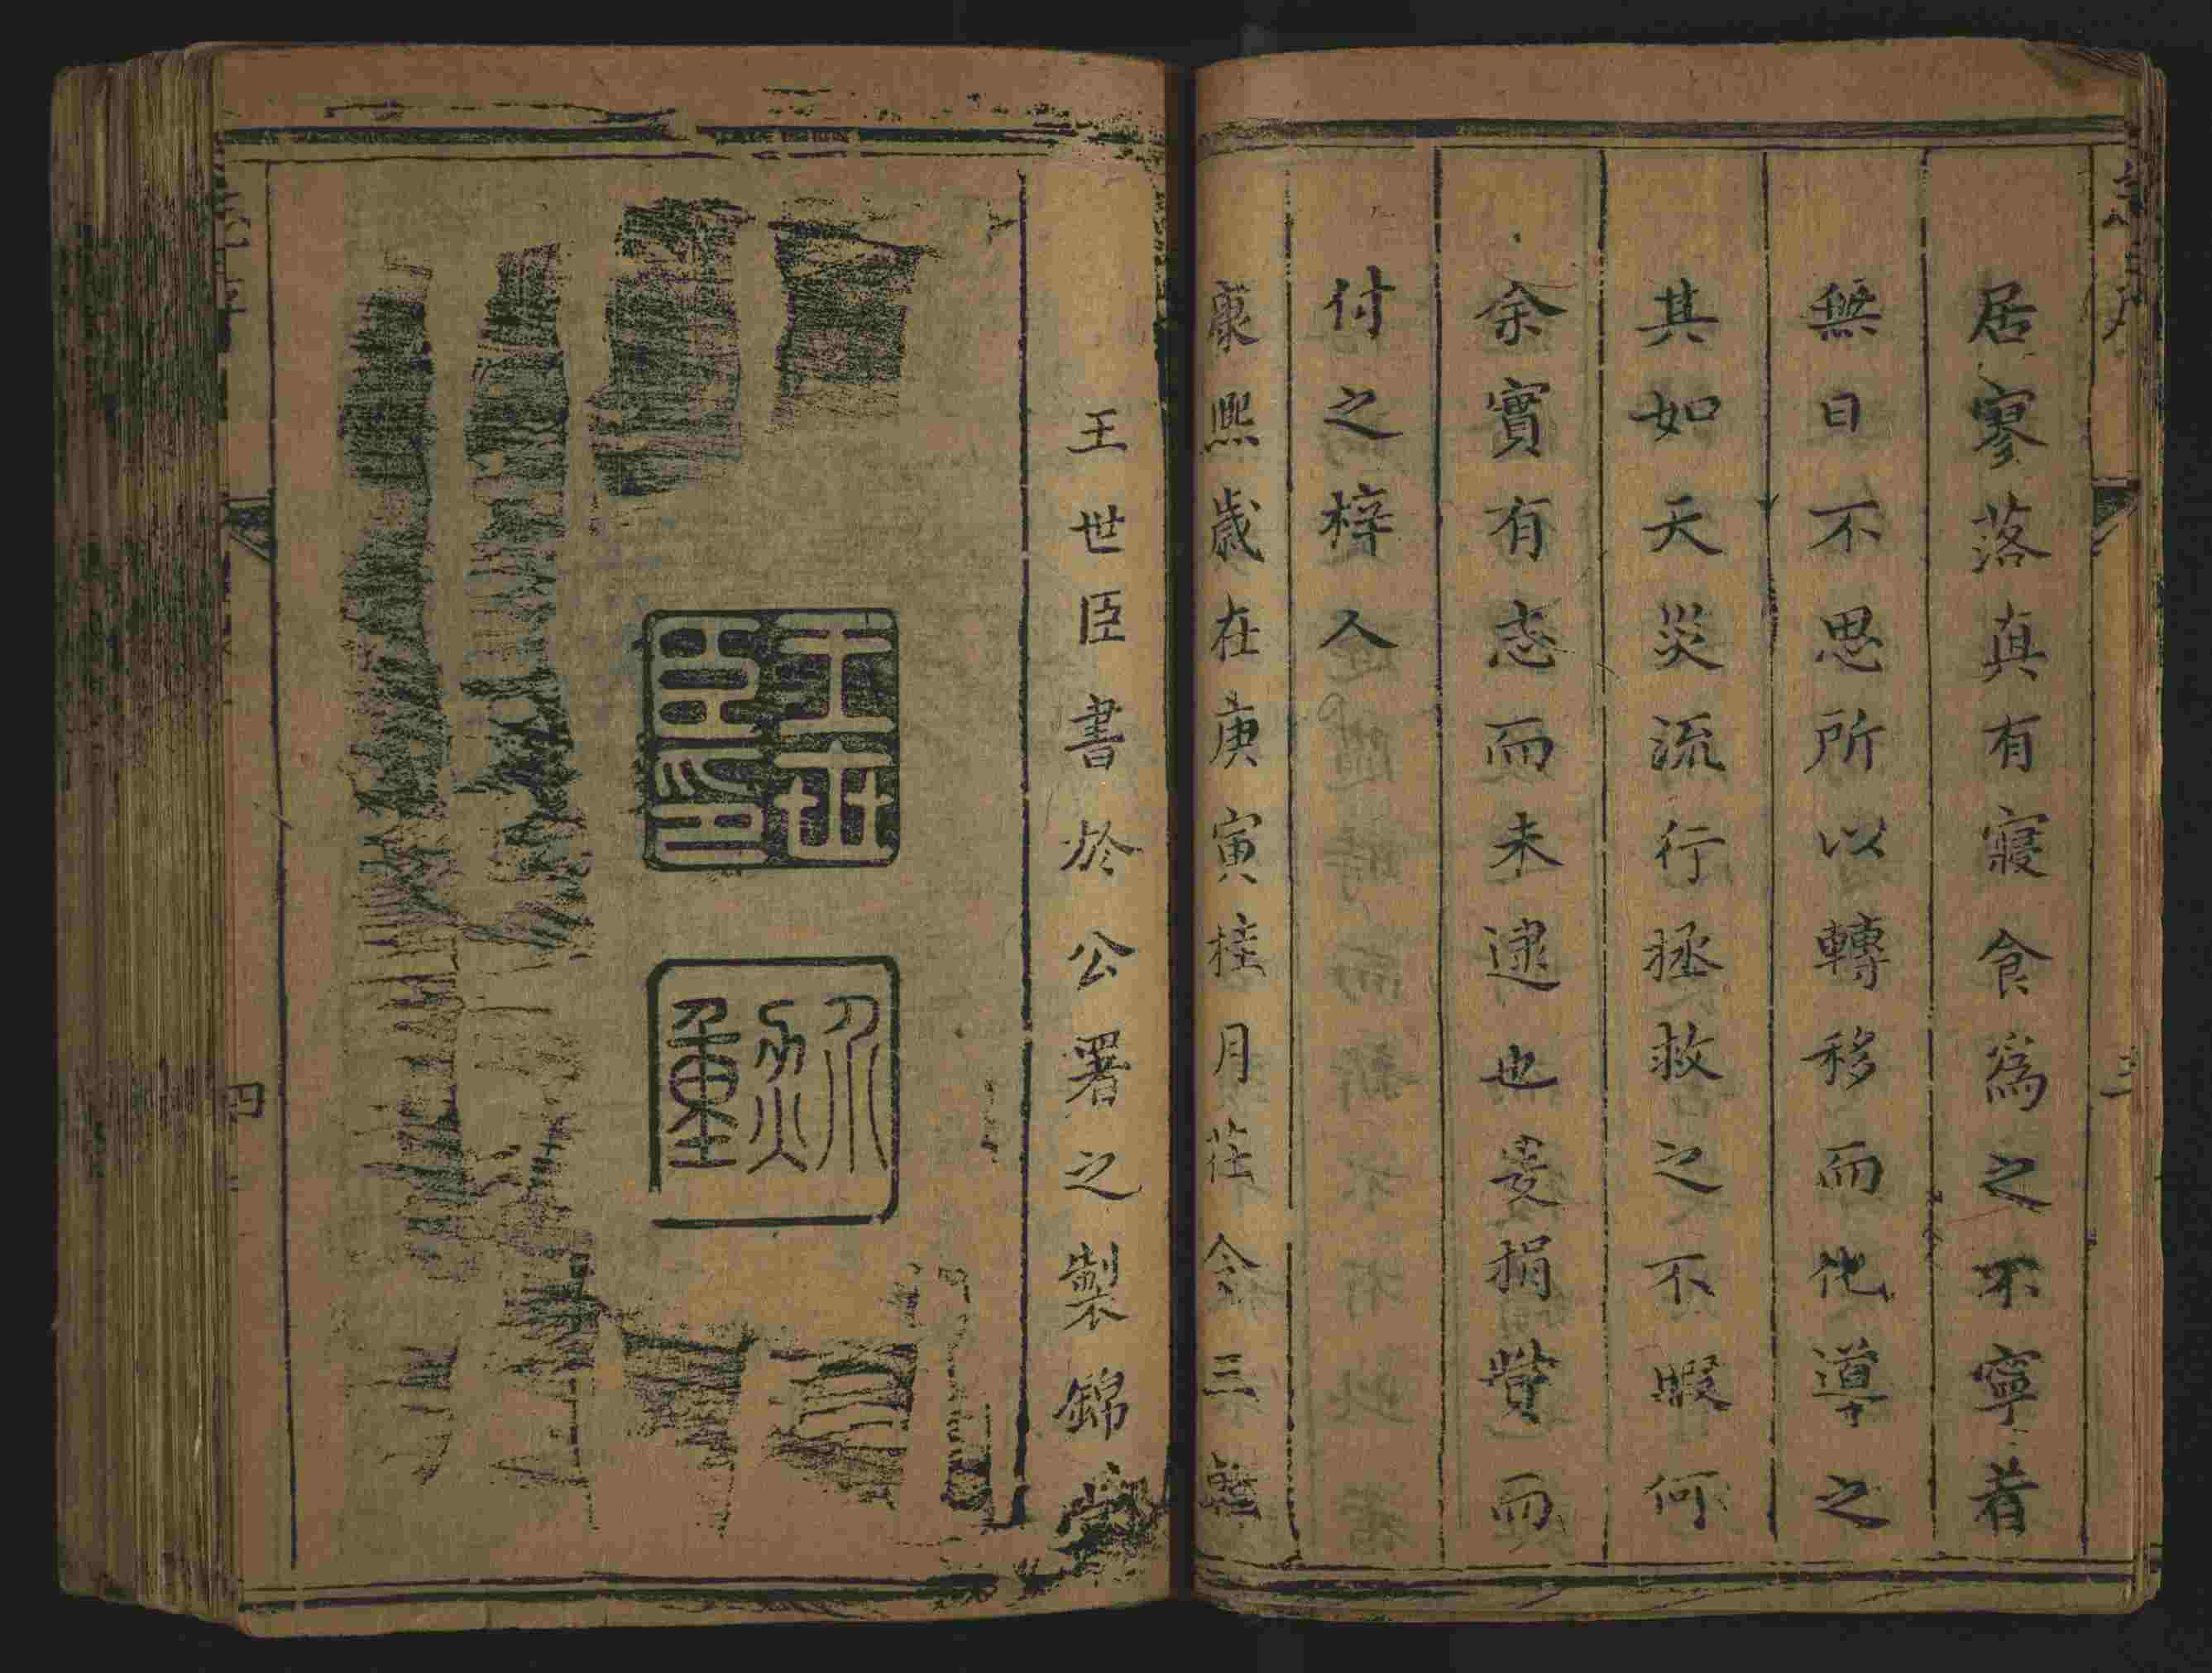 居寥落真有寢食為之不寧者
無日不思所以轉移而化導之
其如天災流行拯救之不暇何
余實有志而未逮也爰捐貲而
付之梓人
康熙歲在庚寅桂月茌令三韓
王世臣書於公署之製錦堂
王世臣印
四